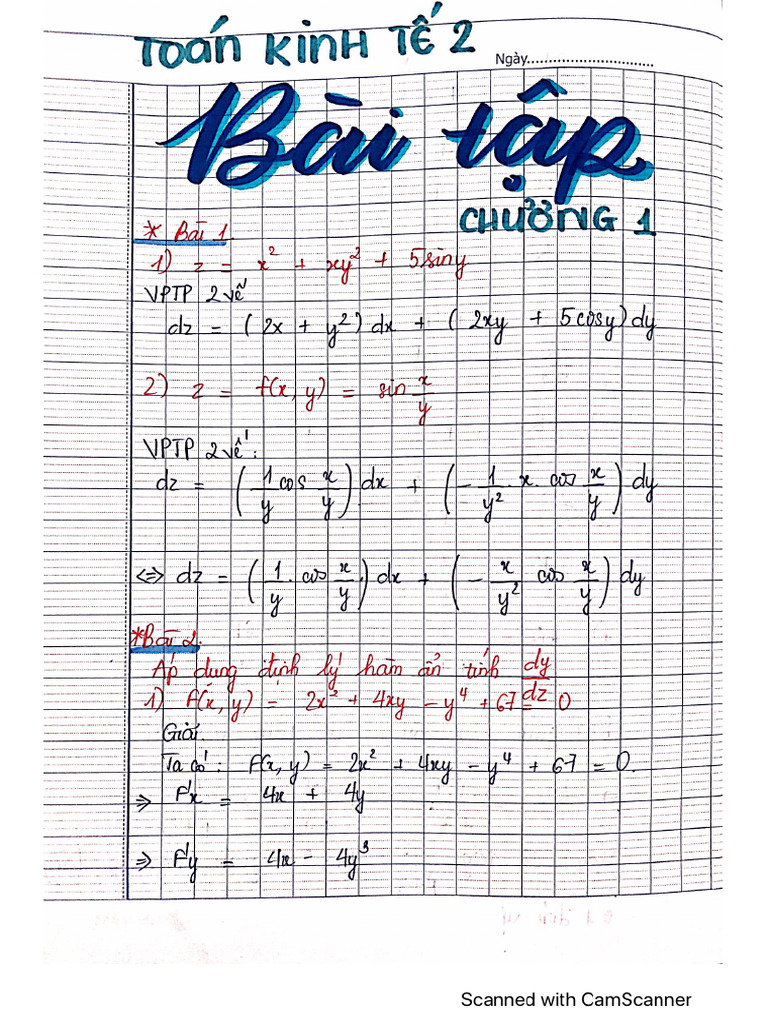 TOÁN KINH TẾ 2
Ngày..............................
Bài tập
CHƯƠNG 1
* Bài 1.
1) z = x² + xy² + 5siny
VPTP 2 vế
dz = (2x + y²) dx + (2xy + 5cosy) dy
2) z = f(x, y) = sin x/y
VPTP 2 vế:
dz = (1/y cos x/y) dx + (- 1/y² . x . cos x/y) dy
<=> dz = (1/y . cos x/y) dx + (- x/y² cos x/y) dy
* Bài 2.
Áp dụng định lý hàm ẩn tính dy/dz
1) f(x, y) = 2x² + 4xy - y⁴ + 67 = 0
Giải.
Ta có: f(x, y) = 2x² + 4xy - y⁴ + 67 = 0.
=> F'x = 4x + 4y
=> F'y = 4x - 4y³
Scanned with CamScanner